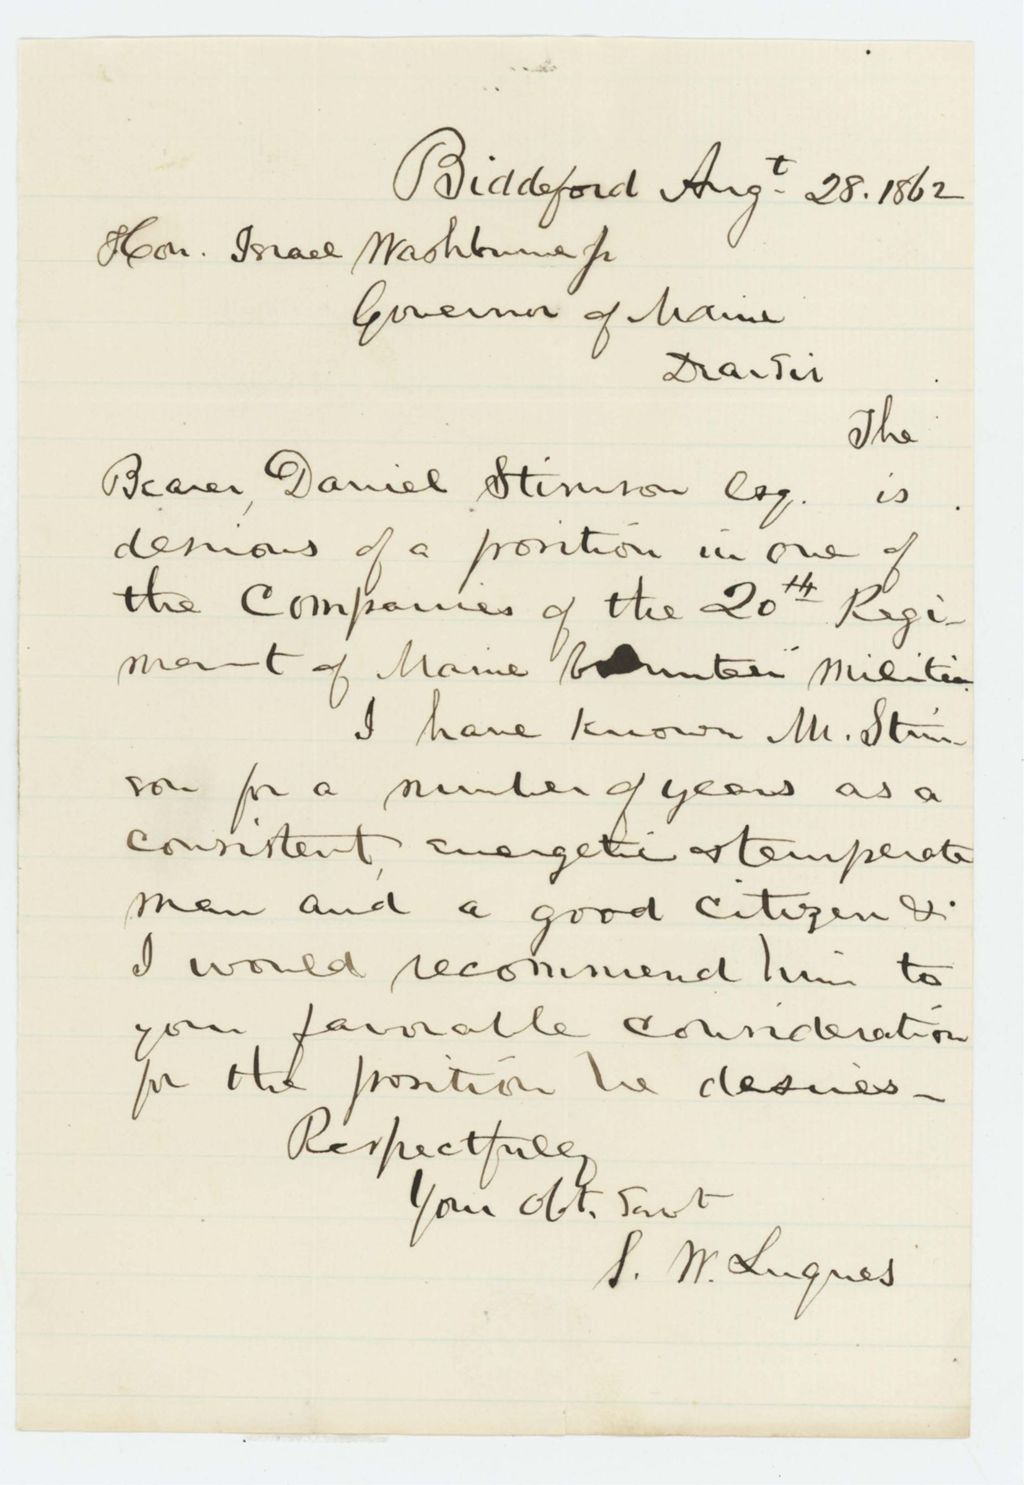 Biddeford Augt. 28. 1862
Hon. Israel Washburne Jr
Governor of Maine
Dear Sir
The
Bearer, Daniel Stimson Esq. is
desirous of a position in one of
the Companies of the 20th Regi-
ment of Maine Volunteer Militia.
I have known Mr. Stim-
son for a number of years as a
consistent, energetic & temperate
man and a good citizen &
I would recommend him to
your favorable consideration
for the position he desires -
Respectfully
Your Obt. Servt
S. W. Luques